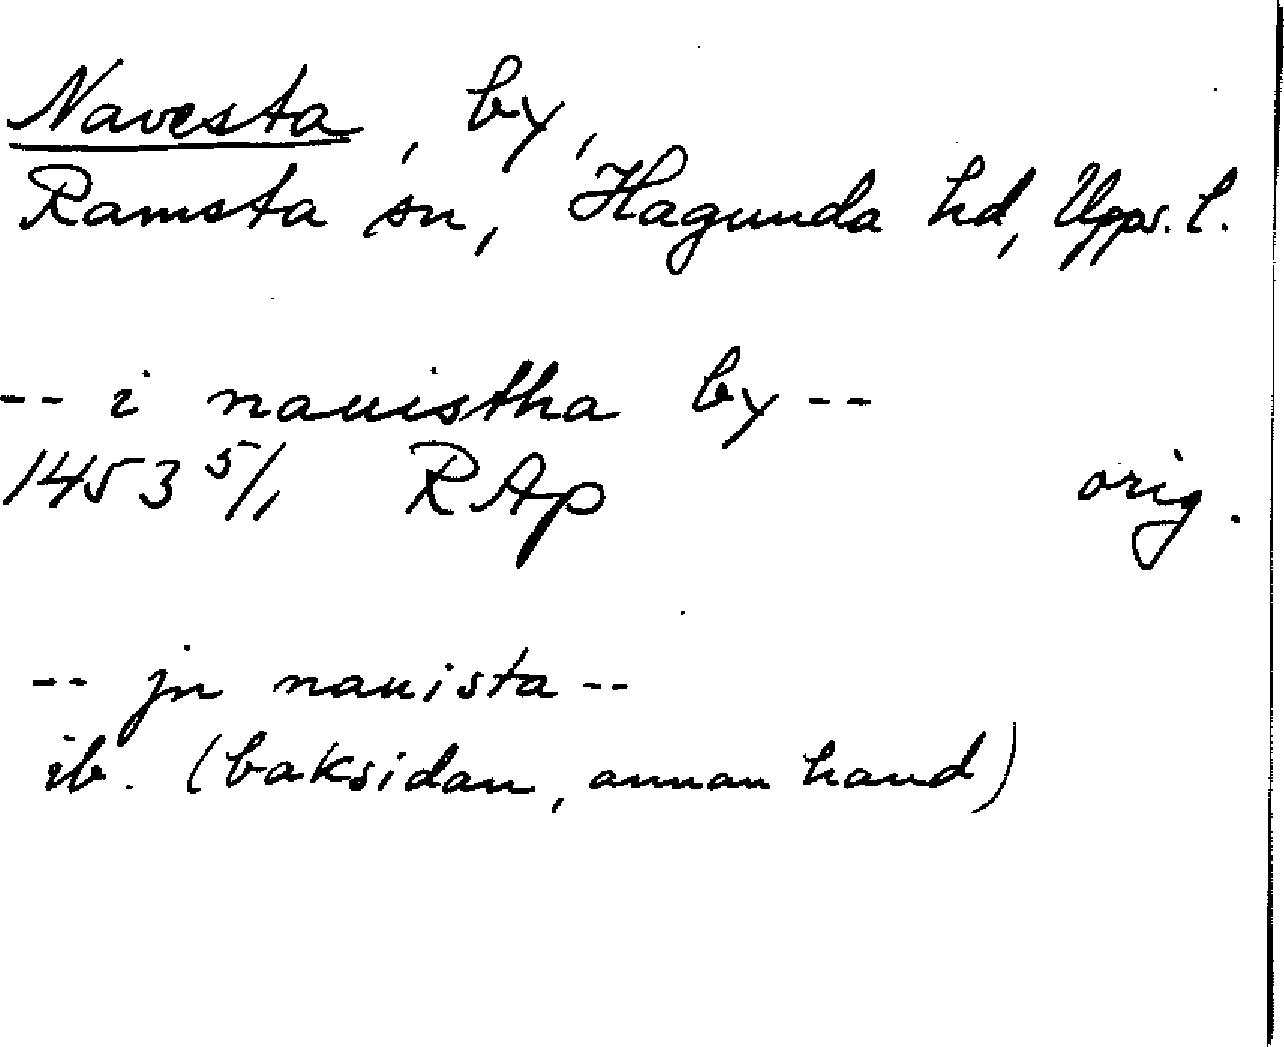 Navesta, by,
Ramsta sn, Hagunda hd, Upps. l.
-- i nauistha by --
1453 5/1 RAp orig.
-- jn nauista --
ib. (baksidan, annan hand)